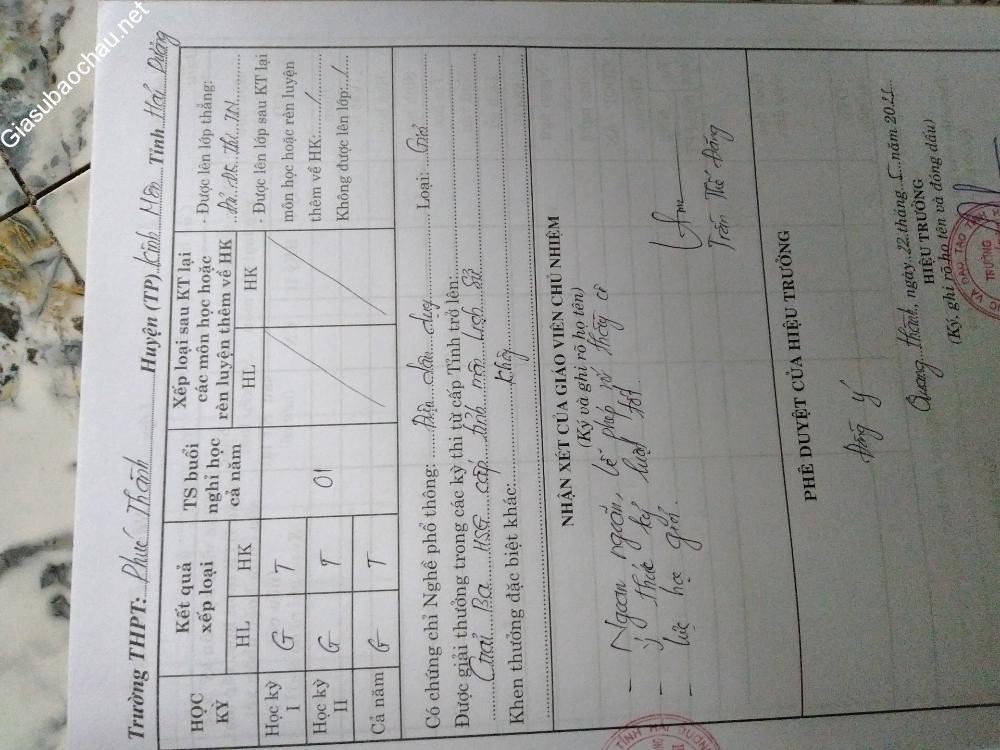 Giasubaochau.net
Trường THPT: Phúc Thành Huyện (TP) Kinh Môn Tỉnh Hải Dương
HỌC KỲ
Kết quả xếp loại
TS buổi nghỉ học cả năm
Xếp loại sau KT lại các môn học hoặc rèn luyện thêm về HK
HL HK HL HK
Học kỳ I G T
Học kỳ II G T 01
Cả năm G T
- Được lên lớp thẳng:
Đủ ĐK Thi TN
- Được lên lớp sau KT lại
môn học hoặc rèn luyện
thêm về HK: /
Không được lên lớp: /
Có chứng chỉ Nghề phổ thông: Điện dân dụng Loại: Giỏi
Được giải thưởng trong các kỳ thi từ cấp Tỉnh trở lên:
Giải Ba HSG cấp tỉnh môn Lịch Sử
Khen thưởng đặc biệt khác: Không
NHẬN XÉT CỦA GIÁO VIÊN CHỦ NHIỆM
(Ký và ghi rõ họ tên)
- Ngoan ngoãn, lễ phép với thầy cô
- ý thức kỷ luật tốt
- lực học giỏi.
Trần Thế Đáng
PHÊ DUYỆT CỦA HIỆU TRƯỞNG
Đồng Ý
Quang Thành, ngày 22 tháng 5 năm 2011
HIỆU TRƯỞNG
(Ký, ghi rõ họ tên và đóng dấu)
VÀ ĐÀO TẠO
TRƯỜNG
TỈNH HẢI DƯƠNG